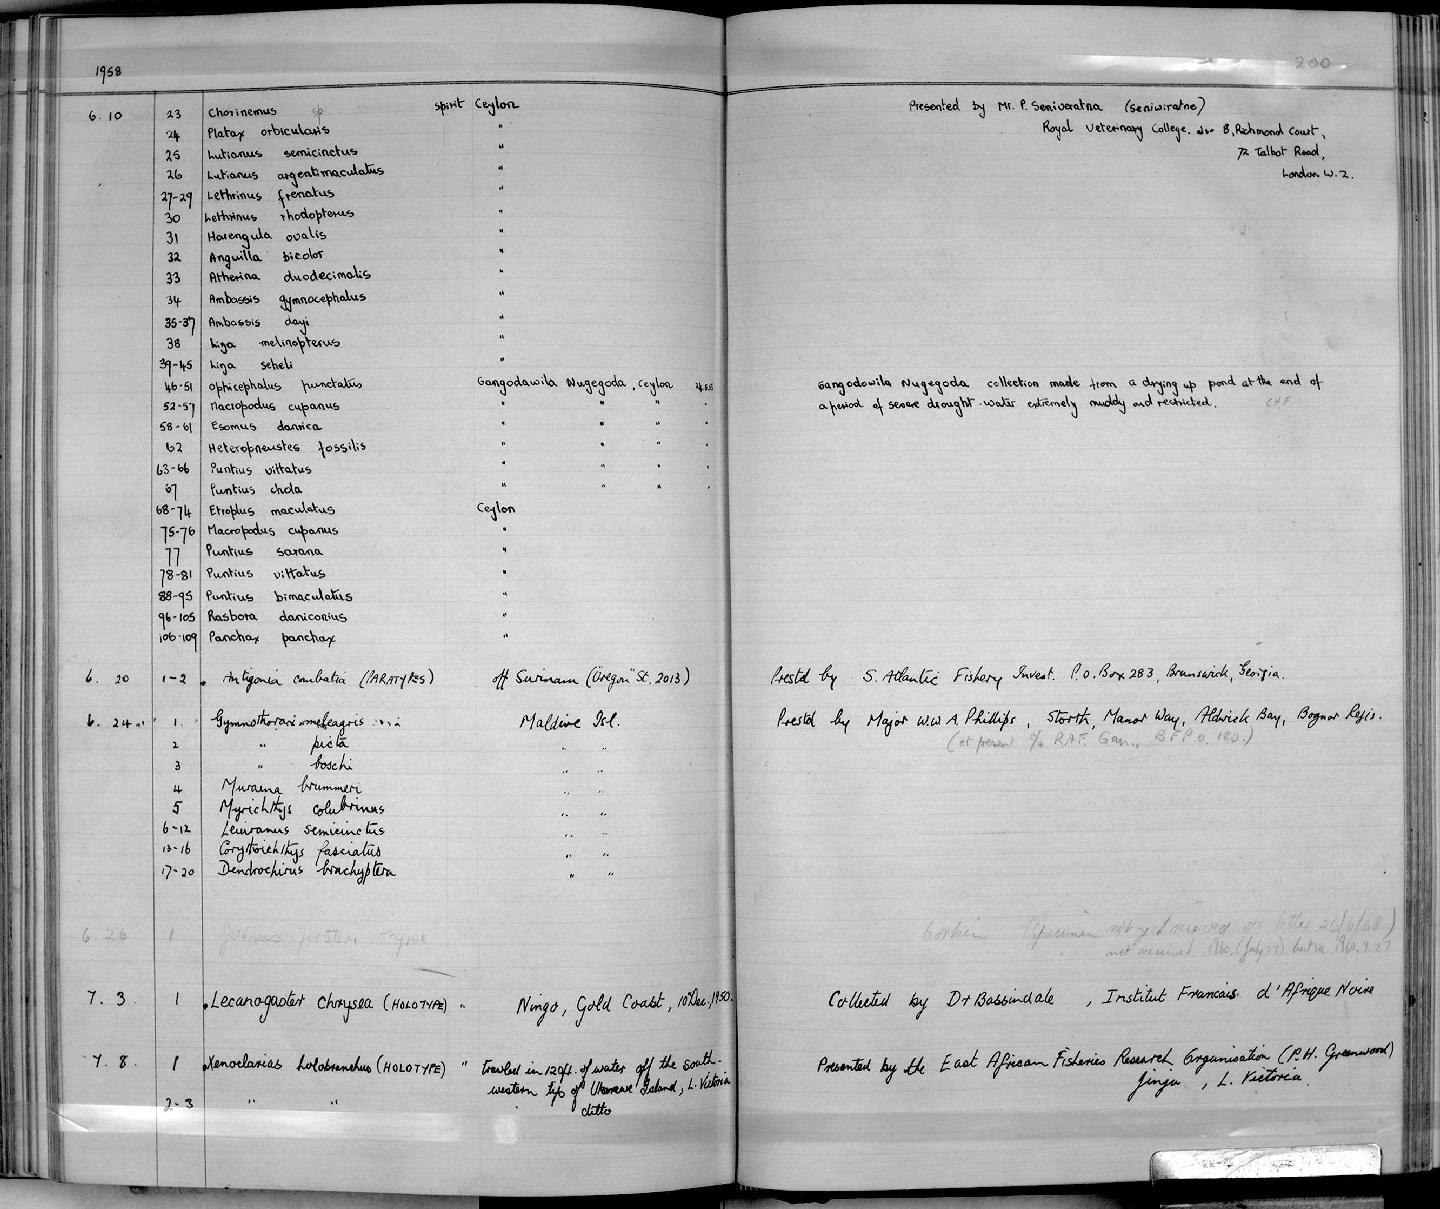 1958
200
6. 10 23 Chorinemus sp. spirit Ceylon Presented by Mr. P. Seniveratna (Seniwiratne)
24 Platax orbicularis " Royal Veterinary College. 8, Richmond Court,
25 Lutianus semicinctus " 72 Talbot Road,
26 Lutianus argentimaculatus " London W.2.
27-29 Lethrinus frenatus "
30 Lethrinus rhodopterus "
31 Harengula ovalis "
32 Anguilla bicolor "
33 Atherina duodecimalis "
34 Ambassis gymnocephalus "
35-37 Ambassis dayi "
38 Liza melinopterus "
39-45 Liza seheli "
46-51 Ophicephalus punctatus Gangodawila Nugegoda, Ceylon Gangodawila Nugegoda collection made from a drying up pond at the end of
52-57 Macropodus cupanus " " " " a period of severe drought-water extremely muddy and restricted.
58-61 Esomus danrica " " " "
62 Heteropneustes fossilis " " " "
63-66 Puntius vittatus " " " "
67 Puntius chola " " " "
68-74 Etroplus maculatus Ceylon
75-76 Macropodus cupanus "
77 Puntius sarana "
78-81 Puntius vittatus "
88-95 Puntius bimaculatus "
96-105 Rasbora daniconius "
106-109 Panchax panchax "
6. 20 1-2 Antigonia combatia (PARATYPES) off Surinam ("Oregon" St. 2013) Prestd by S. Atlantic Fishery Invest. P.O. Box 283, Brunswick, Georgia.
6. 24 1 Gymnothorax meleagris Maldive Isl. Prestd by Major W.W.A. Phillips, Storth, Manor Way, Aldwick Bay, Bognor Regis.
2 " picta " " (at present c/o R.A.F. Gan, B.F.P.O. 180.)
3 " boschi " "
4 Muraena brummeri " "
5 Myrichthys colubrinus " "
6-12 Leiuranus semicinctus " "
13-16 Corythoichthys fasciatus " "
17-20 Dendrochirus brachyptera " "
6. 26 1 Specimen not yet received
not received 1960
7. 3 1 Lecanogaster chrysea (HOLOTYPE) " Ningo, Gold Coast, 10 Dec. 1950. Collected by Dr Bassindale, Institut Francais d'Afrique Noire
7. 8 1 Xenoclarias holobranchus (HOLOTYPE) " trawled in 120ft. of water off the south- Presented by the East African Fisheries Research Organisation (P.H. Greenwood)
western tip of Ukerewe Island, L. Victoria Jinja, L. Victoria.
2-3 " " ditto